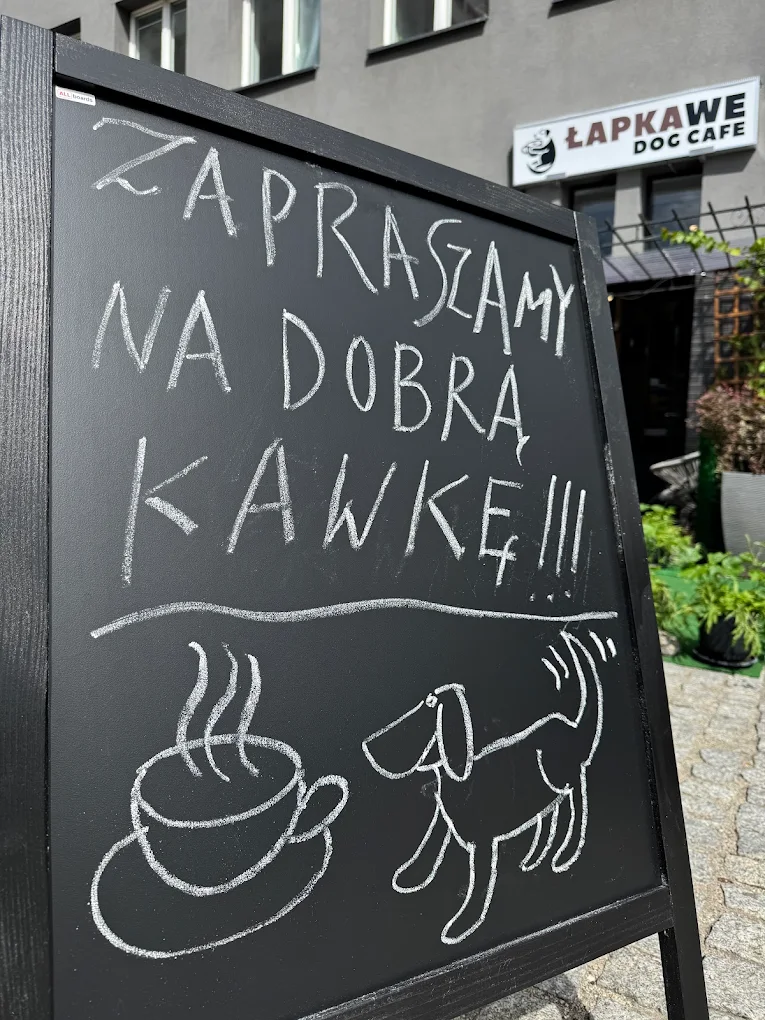 ALLboards
ŁAPKAWE
DOG CAFE
ZAPRASZAMY
NA DOBRĄ
KAWKĘ!!!